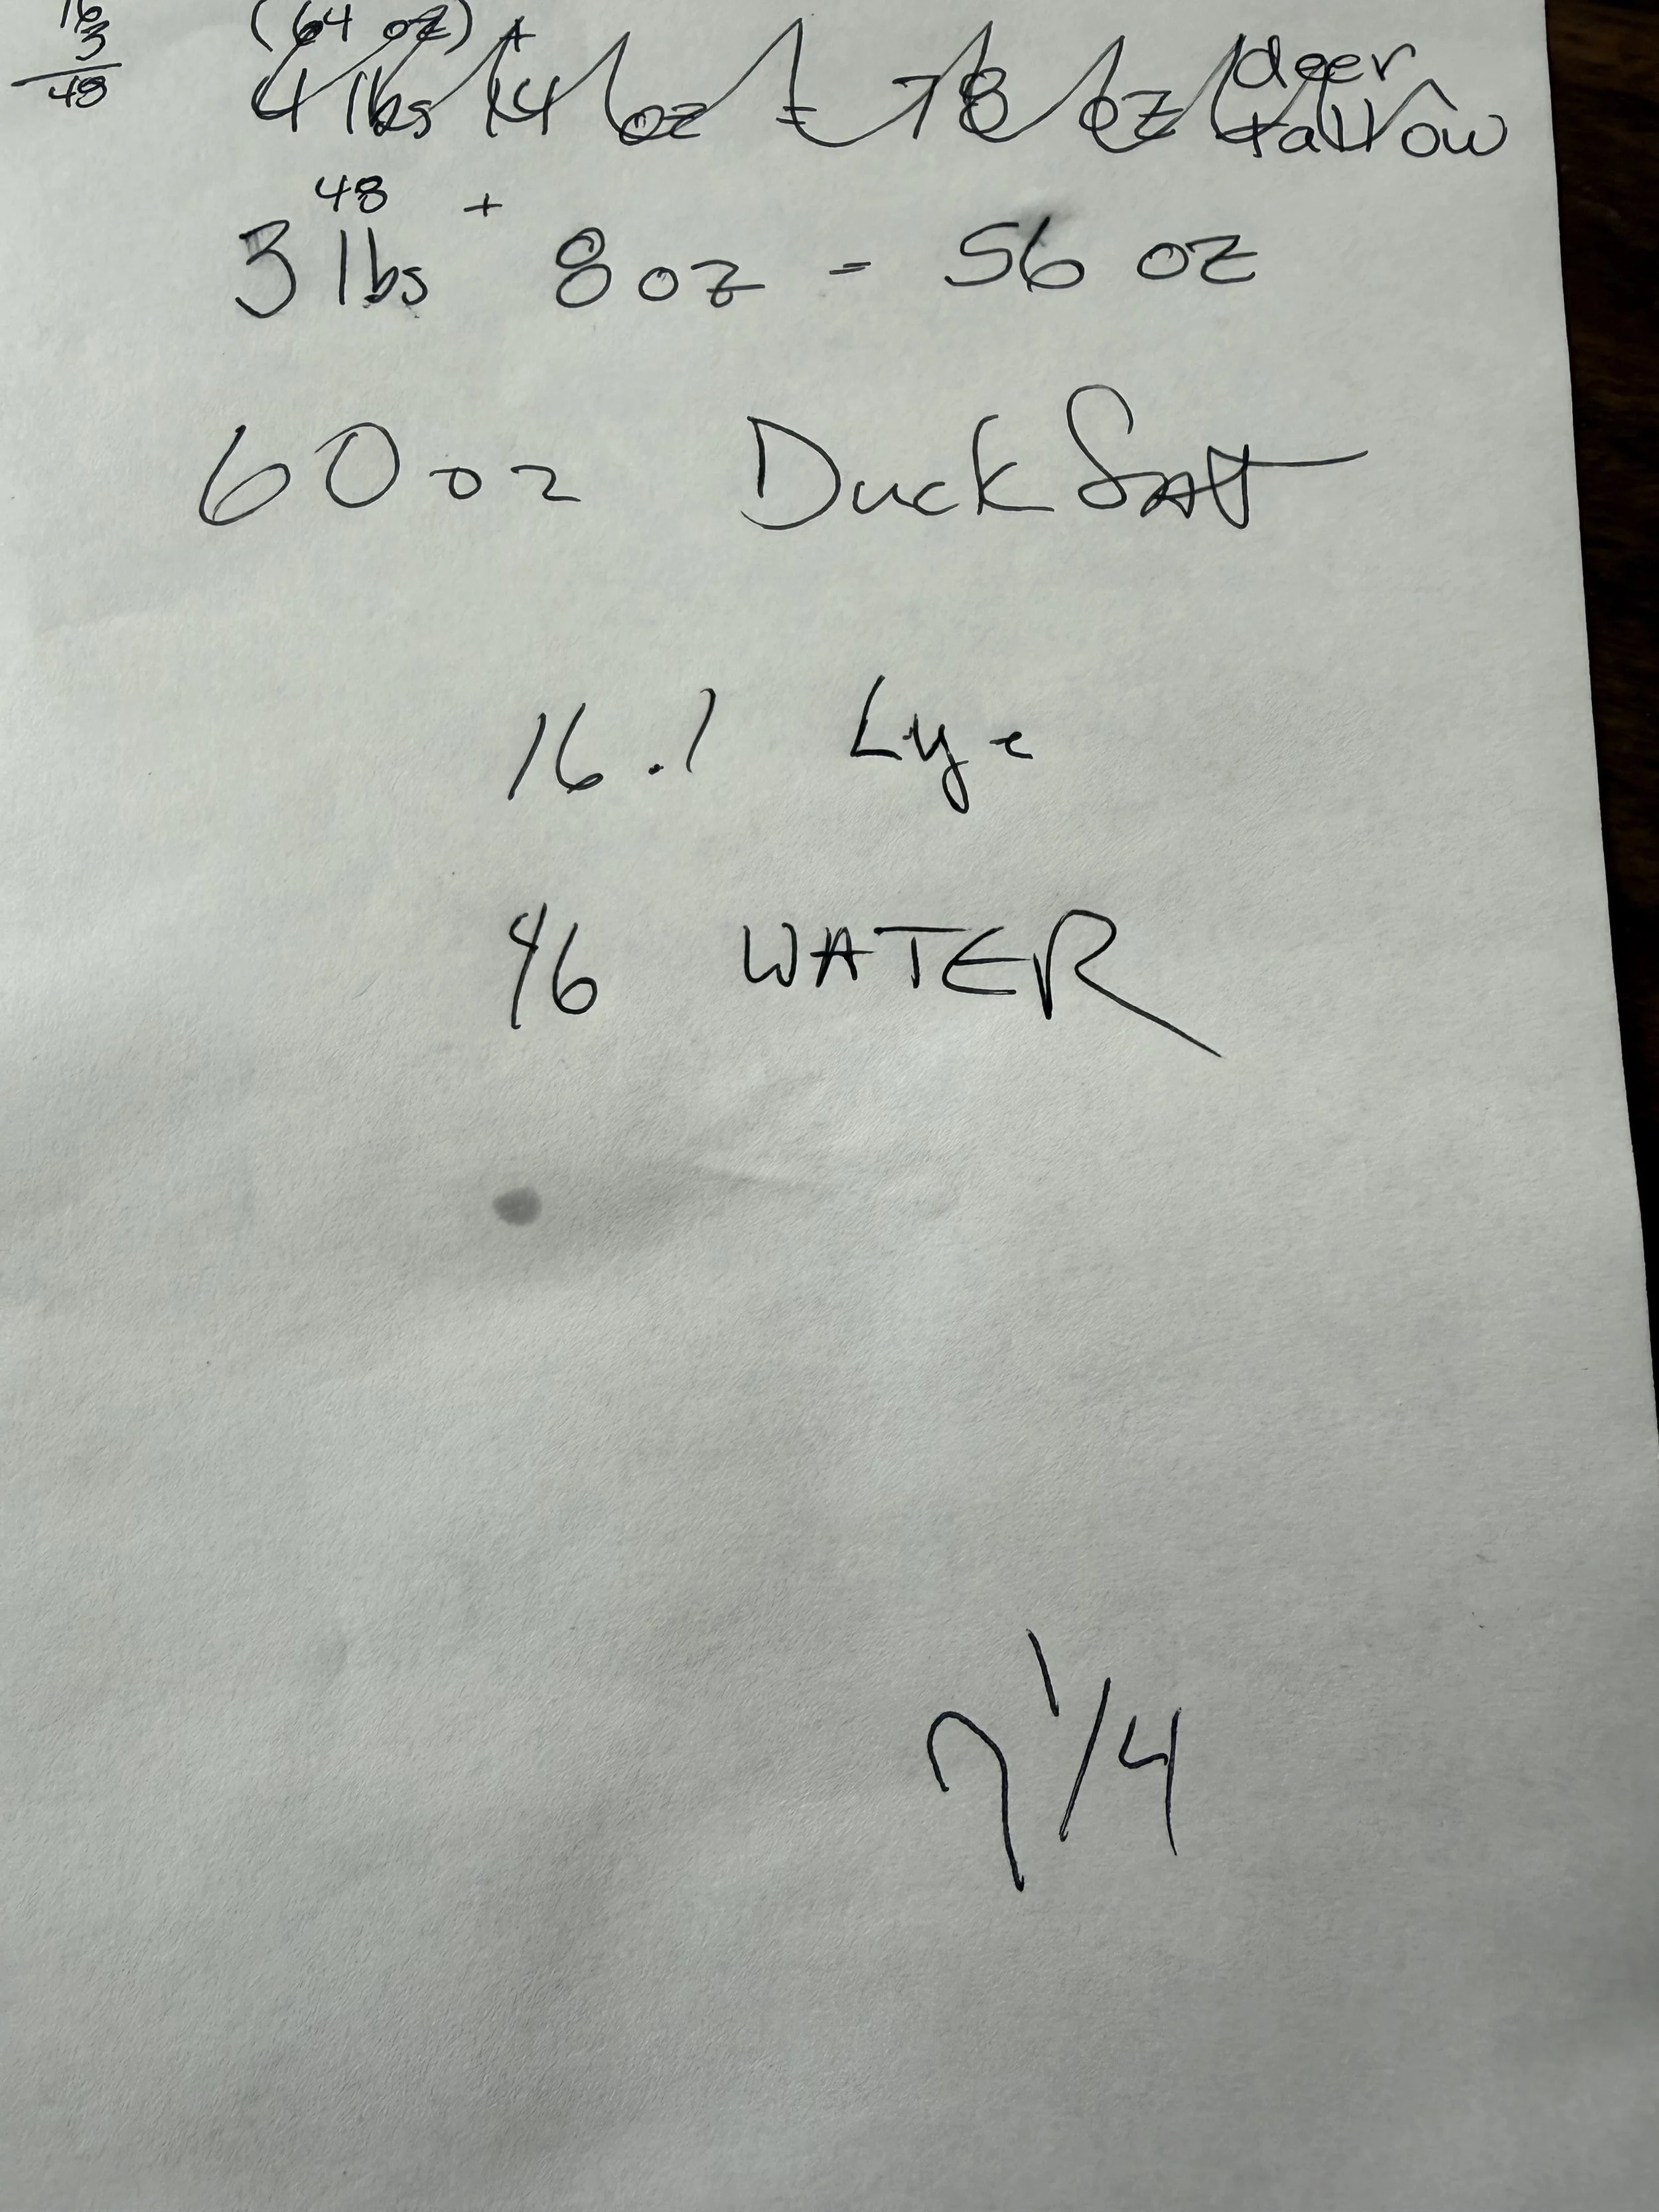 16
3
48
(64 oz) +
4 lbs 14 oz = 78 oz deer tallow
48 +
3 lbs 8 oz - 56 oz
60 oz Duck fat
16.1 Lye
46 WATER
7 1/4